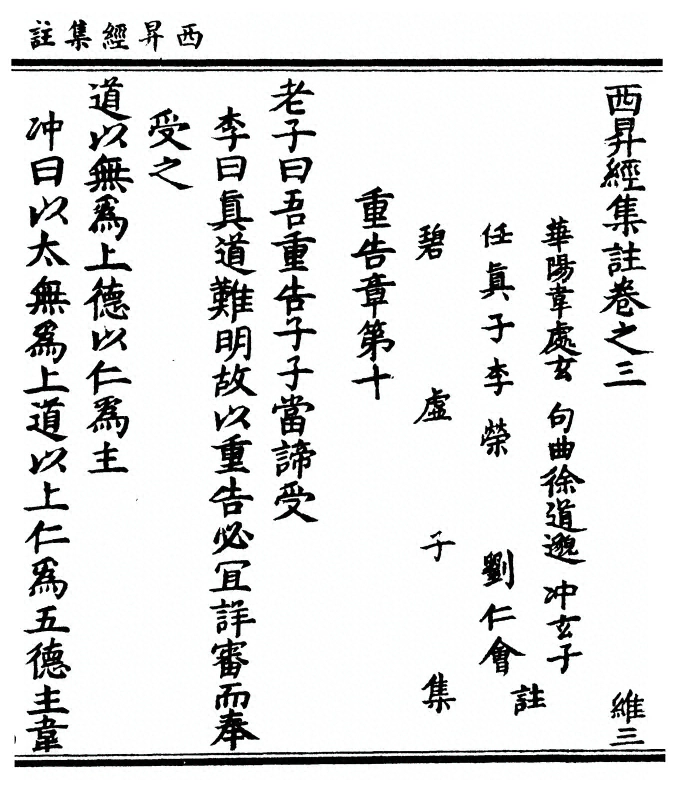 西昇經集註
西昇經集註卷之三 維三
華陽韋處玄 句曲徐道邈 冲玄子
任真子李榮 劉仁會
註
碧虛子集
重告章第十
老子曰吾重告子子當諦受
李曰真道難明故以重告必冝詳審而奉
受之
道以無爲上德以仁爲主
冲曰以太無爲上道以上仁爲五德主韋